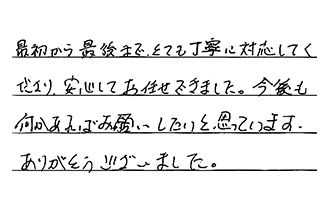 最初から最後まで、とても丁寧に対応してく
ださり、安心してお任せできました。今後も
何かあればお願いしたいと思っています。
ありがとうございました。